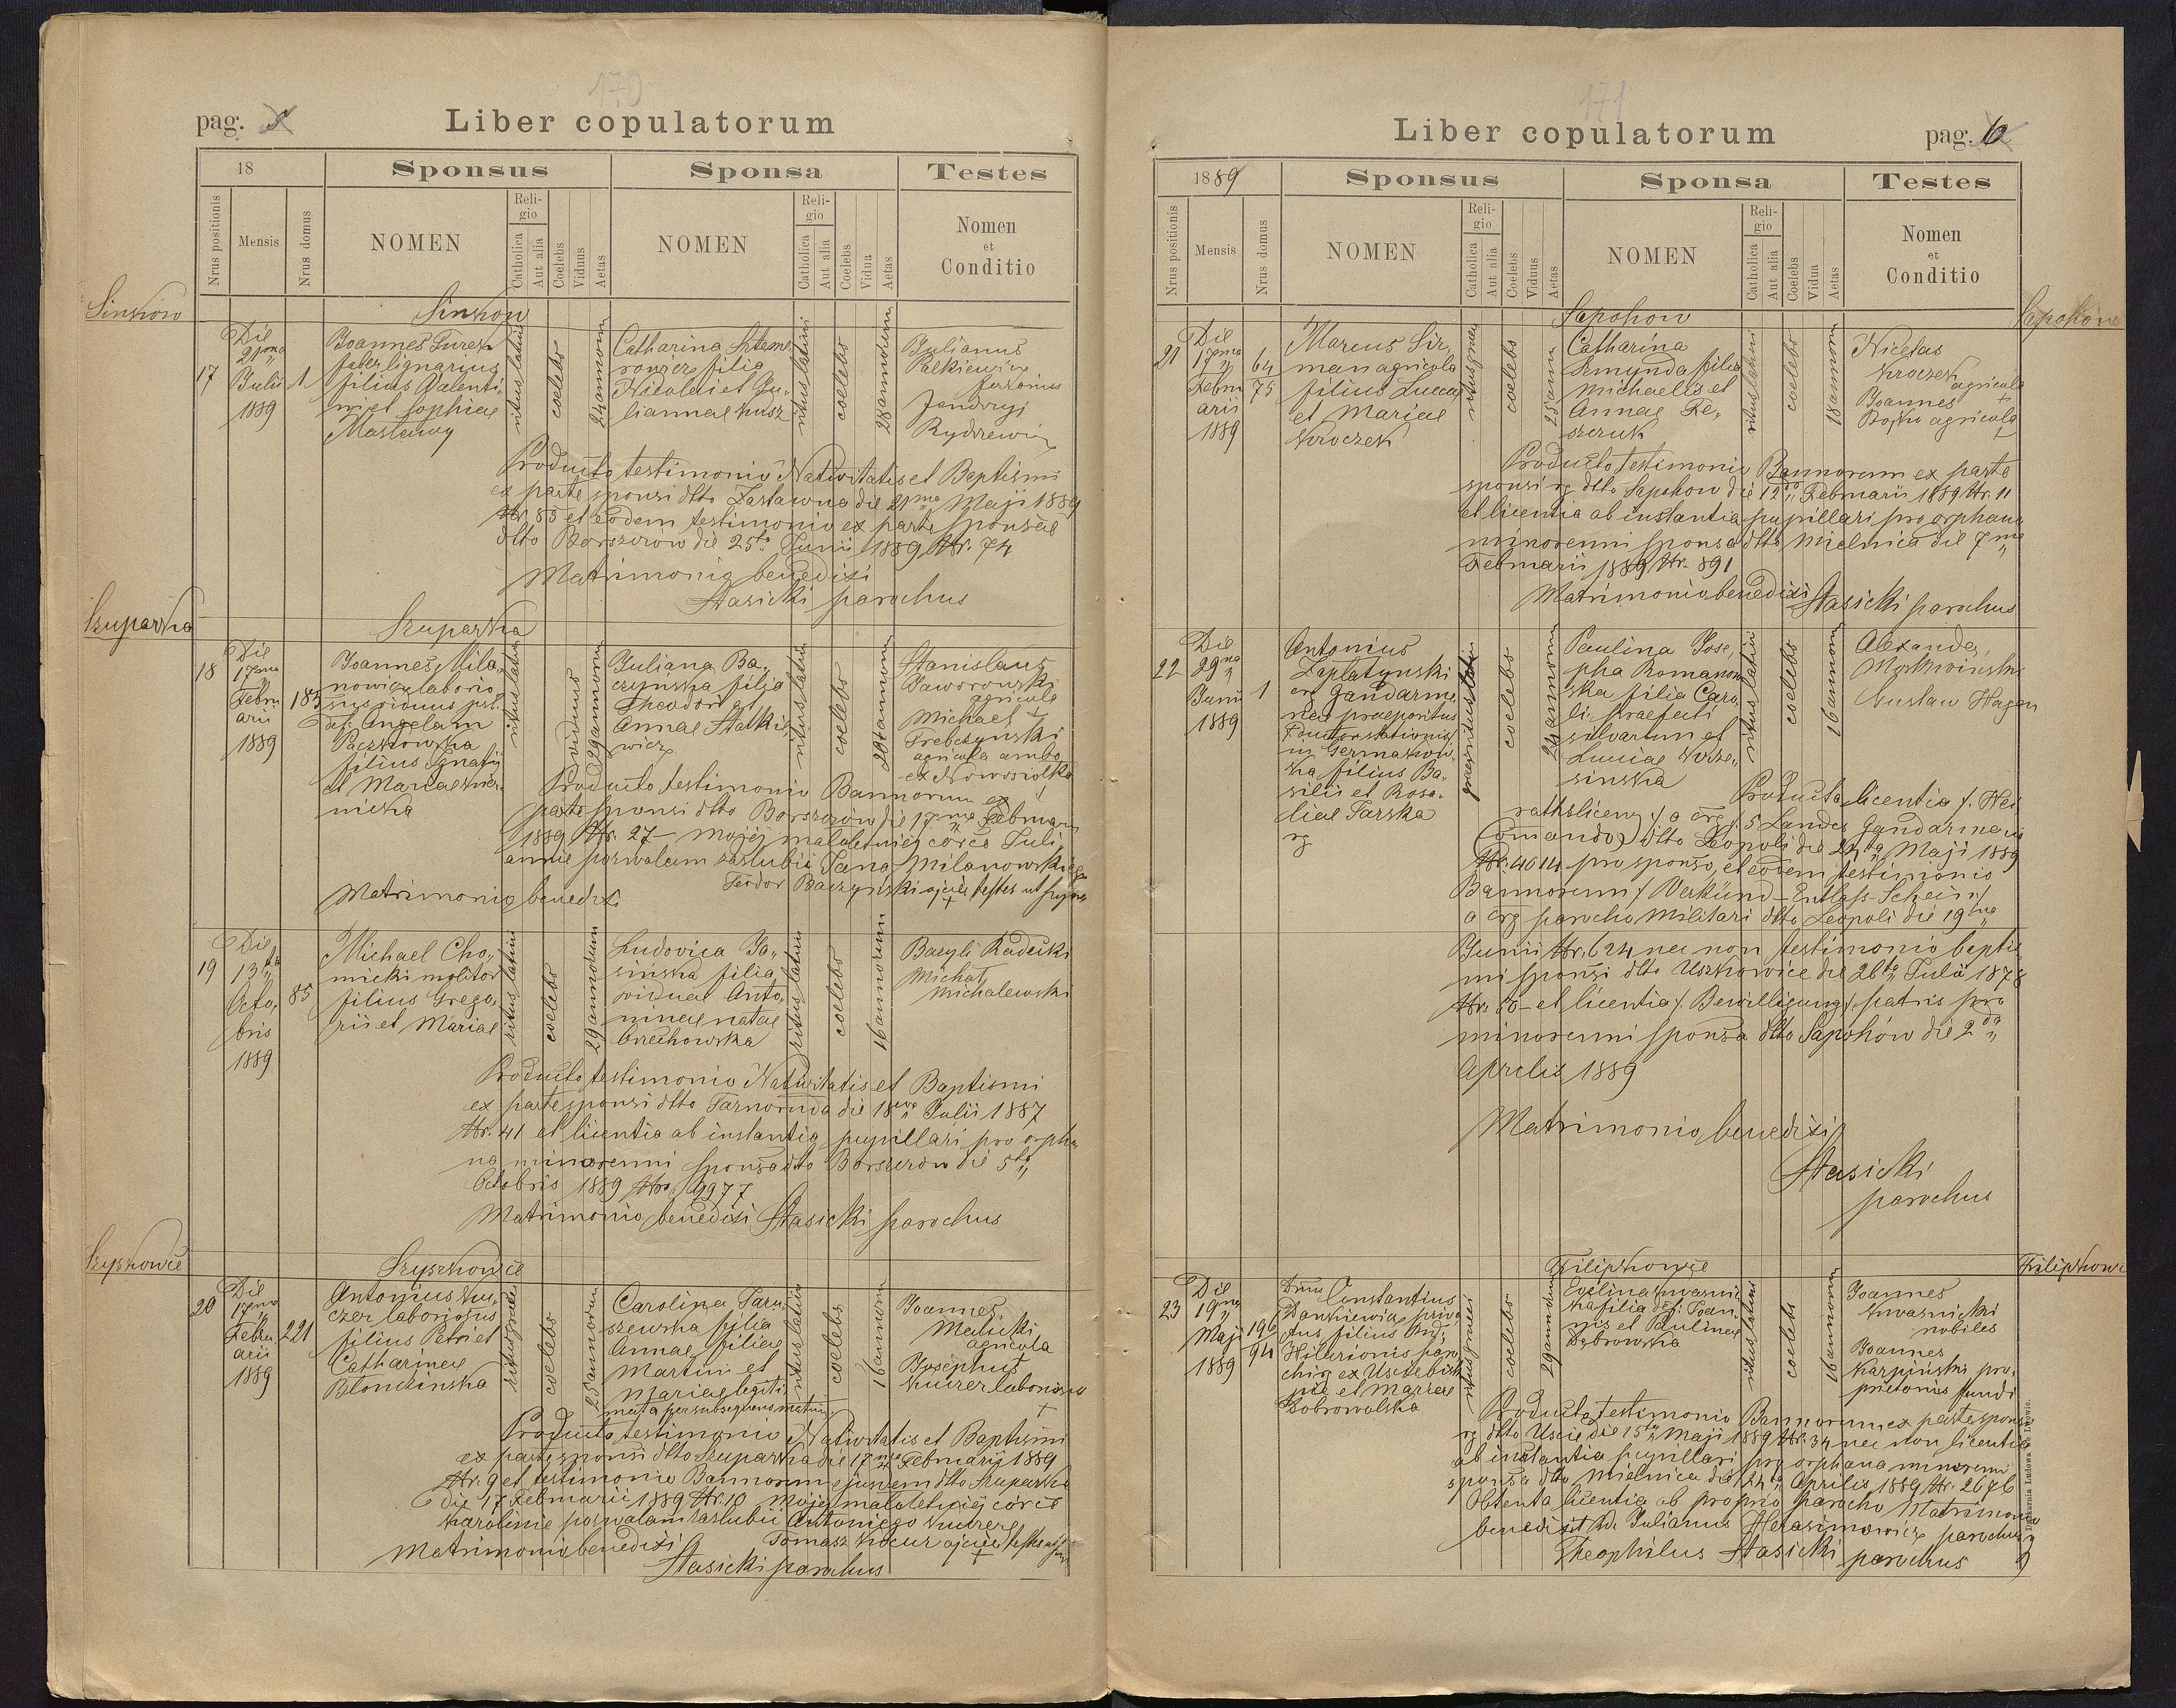 170
pag. 5
Liber copulatorum
18
Sponsus
Sponsa
Testes
Nrus positionis
Mensis
Nrus domus
NOMEN
Religio
Catholica
Aut alia
Coelebs
Viduus
Aetas
NOMEN
Religio
Catholica
Aut alia
Coelebs
Vidua
Aetas
Nomen
et
Conditio
Sinkow
Sinkow
17
Die
21ma
Julii
1889
1
Joannes Turek
faber lignarius
filius Valenti-
ni et Sophiae
Mastawy
ritus latini
coelebs
24 annorum
Catharina
filia
Nicolai et Ju-
liannae Kusz
ritus latini
coelebs
28 annorum
Julianus
Palkiewicz
Jendrzej
Rydzewicz
Producto testimonio Nativitatis et Baptismi
ex parte sponsi dtto Zastawna die 21ma Maji 1889
Nr. 85 et eodem testimonio ex parte sponsae
dtto Borszczow die 25ta Junii 1889 Nr. 74
Matrimonio benedixi
Stasicki parochus
Szuparka
Szuparka
18
Die
17ma
Febru
arii
1889
185
Joannes Mila-
nowicz laborio-
sus viduus post
def. Angelam
Paczkowska
filius Ignatii
et Mariae
nicka
ritus latini
viduus
29 annorum
Juliana Ba-
czyńska filia
Theodori et
Annae Statkie-
wicz
ritus latini
coelebs
20 annorum
Stanislaus
Jaworowski
agricola
Michael +
Trebczynski
agricola ambo
ex Nowosiolka
+
Producto testimonio Bannorum ex
parte sponsi dtto Borszczów die 17ma Februarii
1889 Nr. 27 – Mojéj małoletniéj córce Juli-
annie pozwalam zaślubić Jana Milanowskiego
Teodor Baczyński ojciec testes ut supra
+
Matrimonio benedixi
19
Die
13ta
Octo-
bris
1889
85
Michael Cho-
micki molitor
filius Grego-
rii et Mariae
ritus latini
coelebs
29 annorum
Ludovica Ja-
sińska filia
viduae Anto-
ninae natae
Orzechowska
ritus latini
coelebs
16 annorum
Bazyli Radecki
Michał
Michalewski
Producto testimonio Nativitatis et Baptismi
ex parte sponsi dtto Tarnoruda die 18va Julii 1887
Nr. 41 et licentia ab instantia pupillari pro orpha-
na minorenni sponsa dto Borszczow die 5ta
Octobris 1889 Nro. 9977
Matrimonio benedixi Stasicki parochus
Szyszkowce
Szyszkowce
20
Die
17ma
Febru
arii
1889
221
Antonius Ku-
czer laboriosus
filius Petri et
Catharinae
Blondzinska
ritus graeci
coelebs
25 annorum
Carolina Taru-
szewska filia
Annae filiae
Martini et
Mariae legiti-
mata per subsequens matrim.
ritus latini
coelebs
16 annorum
Joannes
Malicki
agricola
Josephus
Kuczer laboriosus
+
Producto testimonio Nativitatis et Baptismi
ex parte sponsi dtto Szuparka die 17ma Februarii 1889
Nr. 9 et testimonio Bannorum ejusdem dtto Szuparka
die 17 Februarii 1889 Nr. 10 Mojej małoletniéj córce
Karolinie pozwalam zaślubić Antoniego Kuczera
Tomasz Kocur ojciec testes ut supra
+
Matrimonio benedixi
Stasicki parochus
171
Liber copulatorum
pag. 6
1889
Sponsus
Sponsa
Testes
Nrus positionis
Mensis
Nrus domus
NOMEN
Religio
Catholica
Aut alia
Coelebs
Viduus
Aetas
NOMEN
Religio
Catholica
Aut alia
Coelebs
Vidua
Aetas
Nomen
et
Conditio
Sapohow
Sapohow
21
Die
17ma
Febru
arii
1889
64
75
Marcus Sir-
man agricola
filius Lucae
et Mariae
Kroczek
ritus graeci
coelebs
25 ann
Catharina
Szmynda filia
Michaelis et
Annae Fe-
szczuk
ritus latini
coelebs
18 annorum
Nicetas
Kroczek
agricola
+
Joannes
Bojko agricola
+
Producto testimonio Bannorum ex parte
sponsi rg dtto Sapohow die 12da Februarii 1889 Nr. 11
et licentia ab instantia pupillari pro orphana
minorenni sponsa dtto Mielnica die 7ma
Februarii 1889 Nr. 891
Matrimonio benedixi Stasicki parochus
22
Die
29na
Junii
1889
1
Antonius
Zaplatynski
crg Gandarme-
riae praepositus
stationis
in Germakow-
ka filius Ba-
silii et Rosa-
liae Tarska
rg
graeci ritus
coelebs
24 annorum
Paulina Jose-
pha Romanow-
ska filia Caro-
li praefecti
silvarum et
Luciae Korze-
sinska
ritus latini
coelebs
16 annorum
Alexander
Gustaw Hagen
Producta licentia /. Hei-
rathslicenz ./ a crg /. 5 Landes Gandarmerie
Comando) dtto Leopoli die 24ta Maji 1889
Nr. 4014 pro sponso, et eodem testimonio
Bannorum /. Verkünd-Entlass-Schein ./
a crg parocho Militari dtto Leopoli die 19na
Junii Nr. 624 nec non testimonio baptis-
mi sponsi dtto Uszkowice die 26ta Julii 1878
Nr. 60 et licentia /. Bewilligung ./ patris pro
minorenni sponsa dtto Sapohów die 2da
Aprilis 1889
Matrimonio benedixi
Stasicki
parochus
Filipkowce
Filipkowce
23
Die
19na
Maji
1889
196
94
Dnus Constantius
Dankiewicz priva-
tus filius Rndi
Hilarionis paro-
chi ex Uscie bisk-
pie et Mariae
Dobrowolska
ritus graeci
coelebs
29 annorum
Evelina Kwasnic-
ka filia def. Joan-
nis et Paulinae
Dąbrowska
ritus latini
coelebs
16 annorum
Joannes
Kwasnicki
nobiles
Joannes
Karpiński pro-
prietarius fundi
Producto testimonio Bannorum ex parte sponsi
rg dtto Uscie die 15ta Maji 1889 Nr. 34 nec non licentia
ab instantia pupillari pro orphana minorenni
sponsa dtto Mielnica die 24ta Aprilis 1889 Nr. 2676
Obtenta licentia ab proprio parocho Matrimonio
benedixit Rd. Julianus Herasimowicz parochus rg
Theophilus Stasicki parochus
Drukarnia Ludowa we Lwowie.